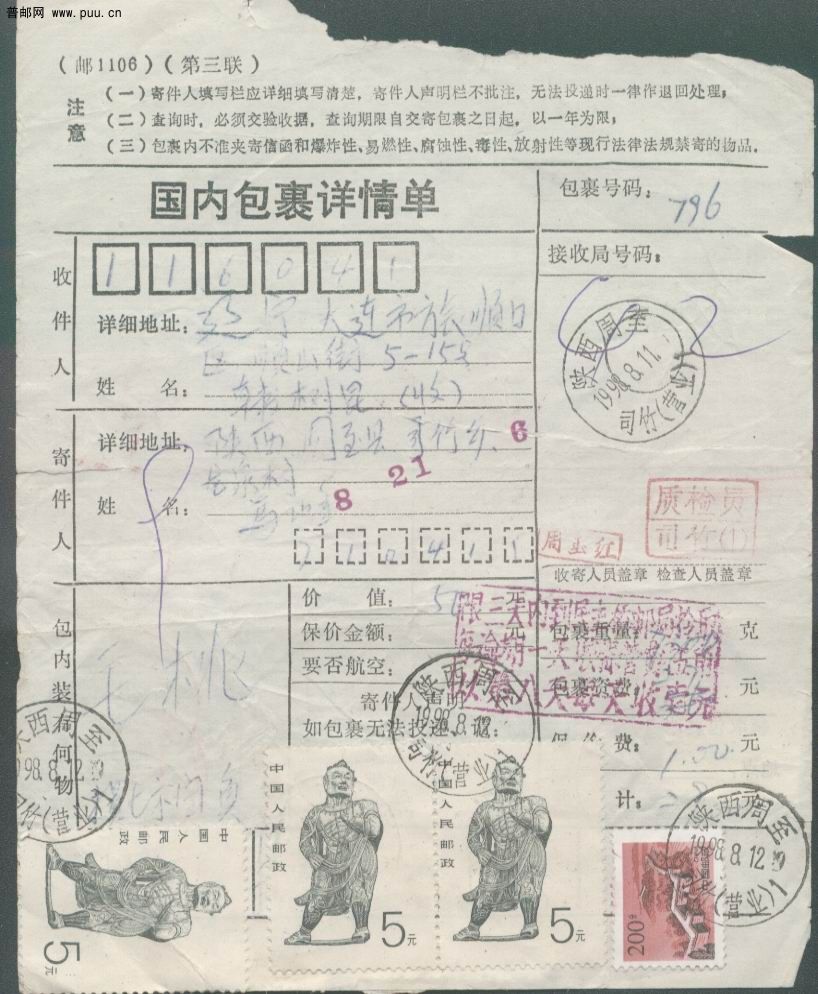 普邮网 www.puu.cn
（邮1106）（第三联）
注意
（一）寄件人填写栏应详细填写清楚，寄件人声明栏不批注，无法投递时一律作退回处理；
（二）查询时，必须交验收据，查询期限自交寄包裹之日起，以一年为限；
（三）包裹内不准夹寄信函和爆炸性、易燃性、腐蚀性、毒性、放射性等现行法律法规禁寄的物品。
国内包裹详情单
包裹号码：
796
接收局号码：
收件人
116041
详细地址：
辽宁 大连市旅顺口
区 顺山街 5-15号
姓 名：
韩树昆 (收)
陕西周至
1998.8.11.
司竹(营业)1
寄件人
详细地址：
陕西 周至县 司竹乡
姓 名：
8 21 6
710411
质检员
司竹(1)
周玉红
收寄人员盖章 检查人员盖章
包内装有何物
毛桃
价 值：
元
保价金额：
元
要否航空：
寄件人声明
如包裹无法投递，请：
包裹重量：
克
包裹资费：
元
保价费：
1.00
元
计：
元
限三天内到
陕西周至
1998.8.12
司竹(营业)1
陕西周至
1998.8.12
司竹(营业)1
陕西周至
1998.8.12
(营业)1
中国人民邮政
5元
中国人民邮政
5元
中国人民邮政
5元
200分